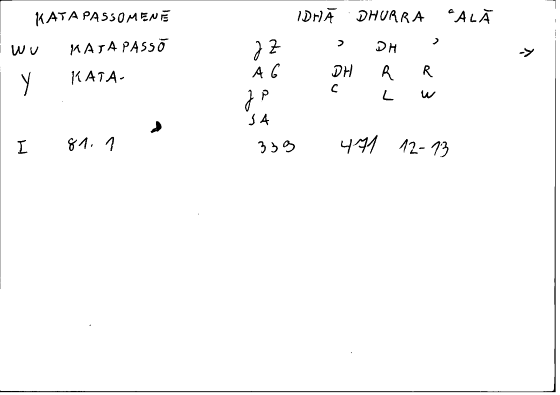 KATAPASSOMENĒ IDHĀ DHURRA ʿALĀ
WU KATAPASSŌ JZ ʾ DH ʾ →
Y KATA- AG DH R R
JP C L W
SA
I 81.1 339 471 12-13